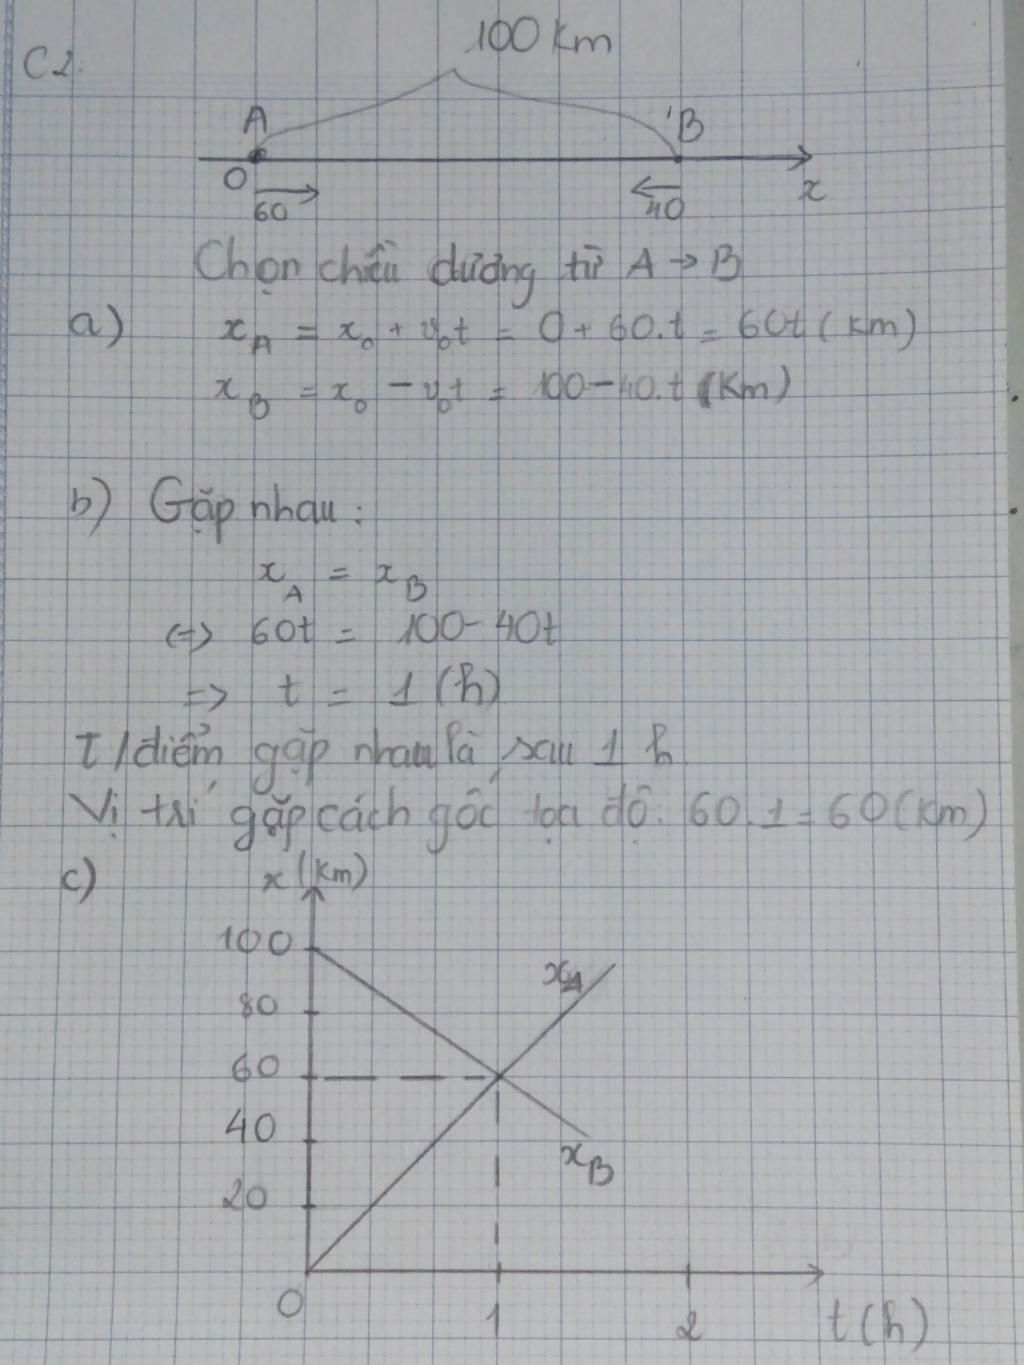 C2.
100 km
A
B
O
60
40
x
Chọn chiều dương từ A → B
a) x_A = x₀ + v₀t = 0 + 60.t = 60t (km)
x_B = x₀ - v₀t = 100 - 40.t (km)
b) Gặp nhau :
x_A = x_B
<=> 60t = 100 - 40t
=> t = 1 (h)
T/điểm gặp nhau là sau 1 h
Vị trí gặp cách gốc tọa độ: 60.1 = 60 (km)
c) x (km)
100
80
60
40
20
x_A
x_B
O
1
2
t (h)